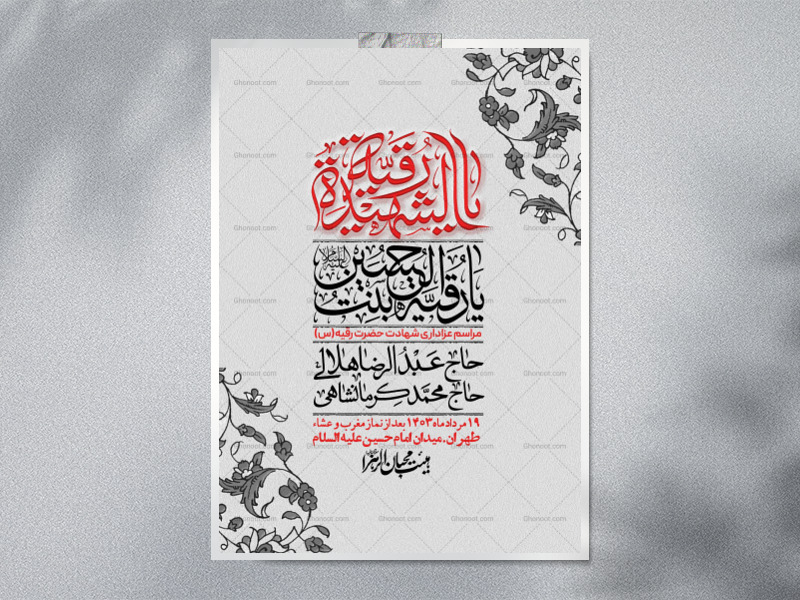 یا رقیة الشهیدة
یا رقیه بنت الحسین علیه السلام
مراسم عزاداری شهادت حضرت رقیه (س)
حاج عبدالرضا هلالی
حاج محمد کرمانشاهی
۱۹ مرداد ماه ۱۴۰۳ بعد از نماز مغرب و عشاء
طهران. میدان امام حسین علیه السلام
هیئت محبان الزهرا
Ghonoot.com